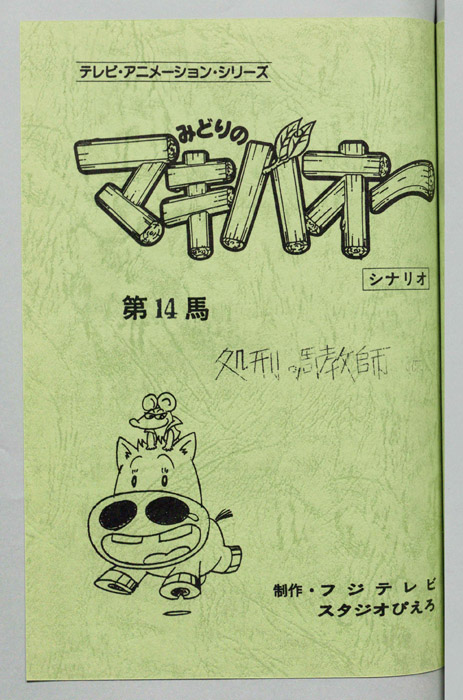 テレビ・アニメーション・シリーズ
みどりの
マキバオー
シナリオ
第14馬
処刑 調教師
制作・フジテレビ
スタジオぴえろ